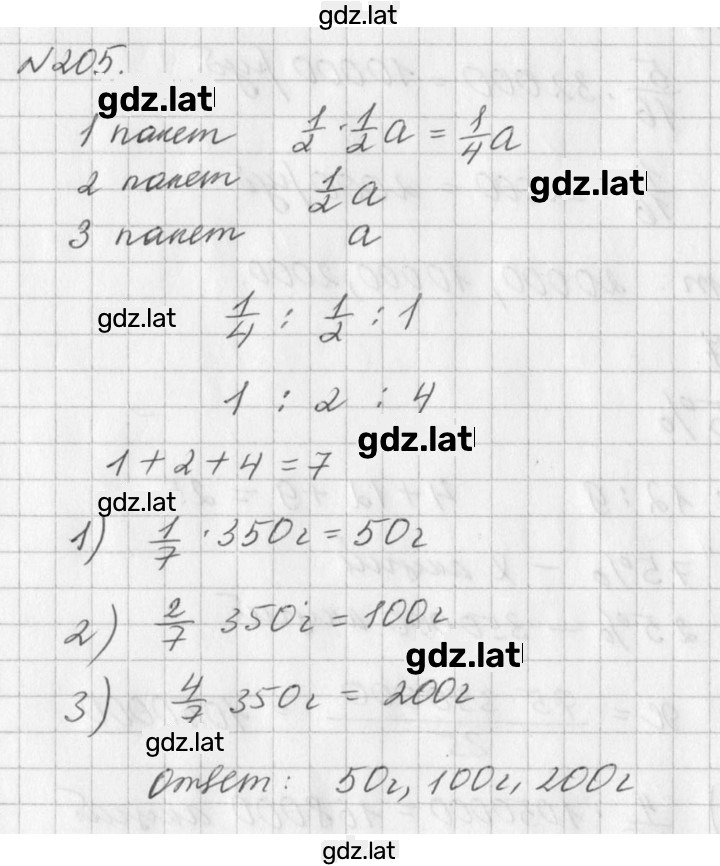 gdz.lat
№205.
gdz.lat
1 пакет 1/2 · 1/2 a = 1/4 a
2 пакет 1/2 a
gdz.lat
3 пакет a
gdz.lat 1/4 : 1/2 : 1
1 : 2 : 4
gdz.lat
1 + 2 + 4 = 7
gdz.lat
1) 1/7 · 350г = 50г
2) 2/7 350г = 100г
gdz.lat
3) 4/7 350г = 200г
gdz.lat
Ответ: 50г, 100г, 200г
gdz.lat